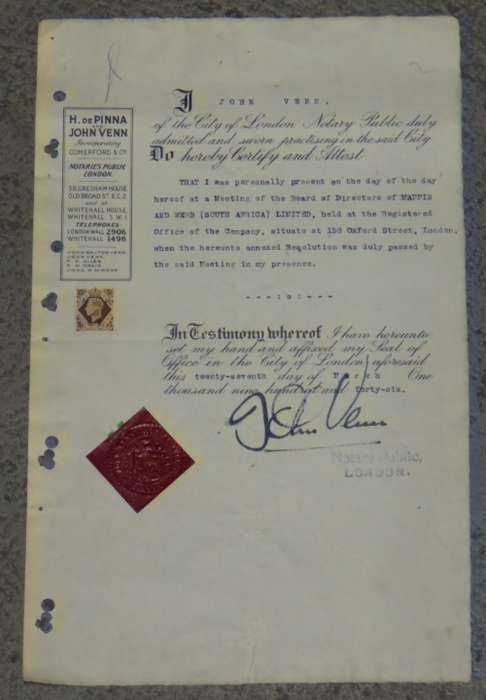 H. DE PINNA
AND
JOHN VENN
Incorporating
COMERFORD & Co.
NOTARIES PUBLIC
LONDON.
GRESHAM HOUSE
OLD BROAD ST. E.C.2
and at
WHITEHALL HOUSE
WHITEHALL S.W.1
TELEPHONES
LONDON WALL 2906
WHITEHALL 1496
JOHN VENN
I JOHN VENN,
of the City of London Notary Public duly
admitted and sworn practising in the said City
Do hereby Certify and Attest
THAT I was personally present on the day of the day
hereof at a Meeting of the Board of Directors of MAPPIN
AND WEBB (SOUTH AFRICA) LIMITED, held at the Registered
Office of the Company, situate at 158 Oxford Street, London,
when the hereunto annexed Resolution was duly passed by
the said Meeting in my presence.
In Testimony whereof I have hereunto
set my hand and affixed my Seal of
Office in the City of London aforesaid
this twenty-seventh day of March One
thousand nine hundred and forty-six.
John Venn
Notary Public,
LONDON.